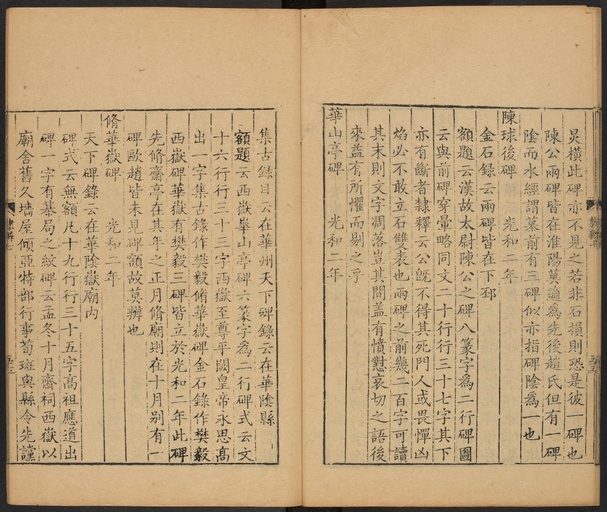 炅橫此碑亦不見之若非石損則恐是彼一碑也
陳公兩碑皆在淮陽莫適為先後趙氏但有一碑
陰而水經謂墓前有三碑似亦指碑陰為一也
陳球後碑 光和二年
金石錄云兩碑皆在下邳
額題云漢故太尉陳公之碑八篆字為二行碑圖
云與前碑穿暈略同文二十行行三十七字其下
亦有斷者隸釋云公旣不得其死門人或畏憚凶
焰必不敢立石雙表也兩碑之前幾二百字可讀
其末則文字凋落豈其間蓋有憤懟哀切之語後
來蓋有所懼而剔之乎
華山亭碑 光和二年
集古錄目云在華州天下碑錄云在華陰縣
額題云西嶽華山亭碑六篆字為二行碑式云文
十六行行三十三字西嶽至尊平闕皇帝永思高
出一字集古錄作樊毅脩華嶽碑金石錄作樊毅
西嶽碑華嶽有樊毅三碑皆立於光和二年此碑
先脩齋亭在其年之正月脩廟則在十月别有一
碑歐趙皆未見碑額故莫辨也
脩華嶽碑 光和二年
天下碑錄云在華陰嶽廟内
碑式云無額凡十九行行三十五字高祖應道出
碑一字有棊局之紋碑云孟冬十月齋祠西嶽以
廟舍舊久墻屋傾亞特部行事荀班與縣令先讜